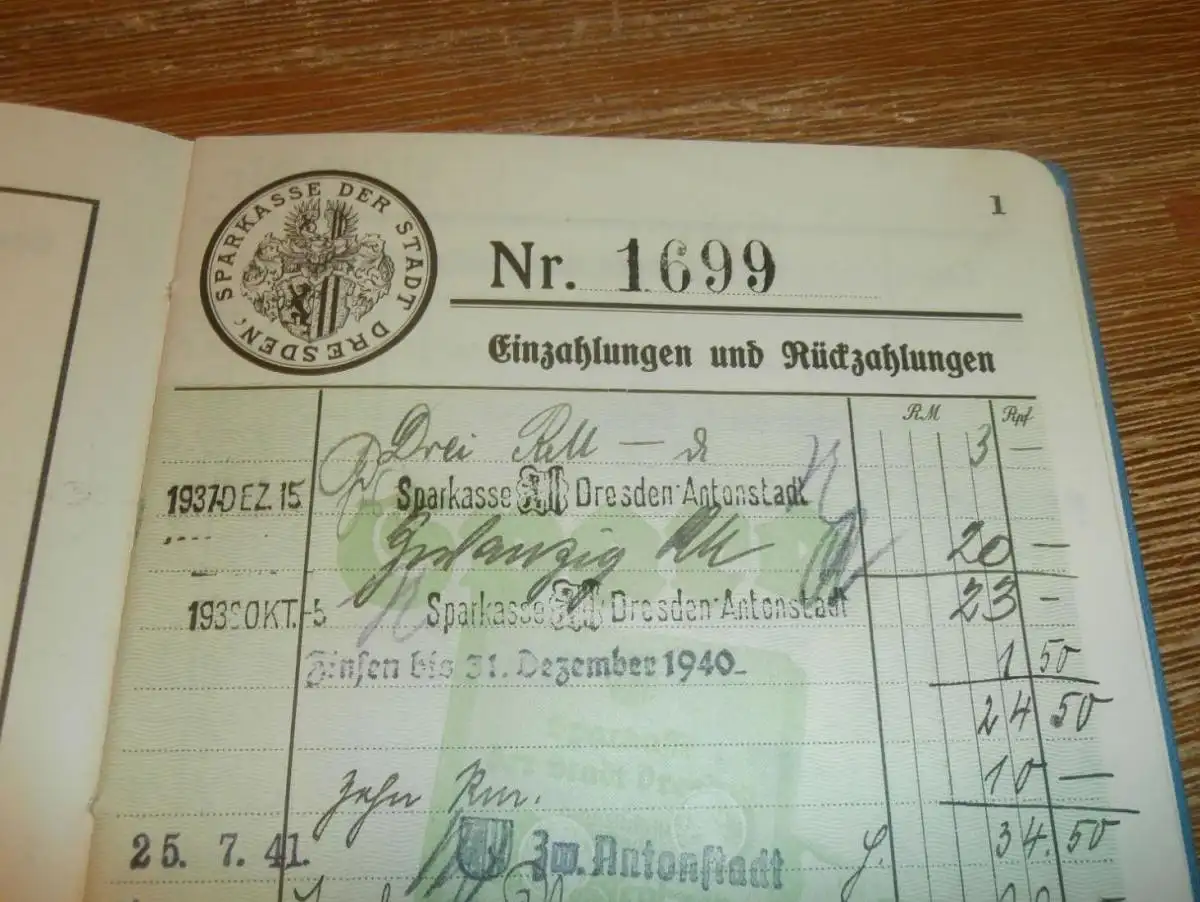 1
SPARKASSE DER STADT DRESDEN,
Nr. 1699
Einzahlungen und Rückzahlungen
RM Rpf
Drei RM — 3 —
1937 DEZ. 15 Sparkasse Dresden-Antonstadt
Zwanzig RM 20 —
OKT. -5 Sparkasse Dresden-Antonstadt 23 -
Zinsen bis 31. Dezember 1940 1 50
24 50
Zehn RM. 10 —
25. 7. 41. Zw. Antonstadt 34. 50